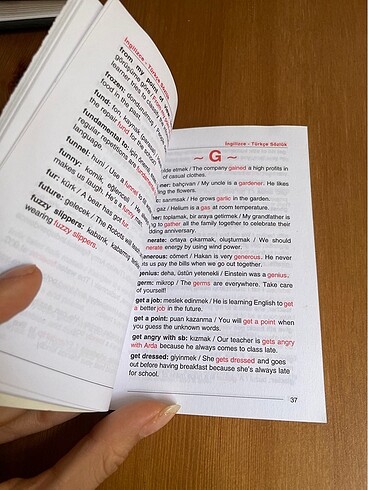 İngilizce - Türkçe Sözlük
from my point of
görüşüme gö
learner tries to
frozen: dondurulmuş /
food in the past.
fund: fon, kaynak (par
the repair fund for the
fundamental to: için önemli,
regular repetitions are
language.
funnel: huni / Use a funnel to
funny: komik, eğlenceli / He
makes us laugh. He's a funny
fur: kürk / A bear has got fur.
future: gelecek / The Robots will
fuzzy slippers: kabarık, kabarmış terlik
wearing fuzzy slippers.
İngilizce - Türkçe Sözlük
~ G ~
elde etmek / The company gained a high profits in
of casual clothes.
ner: bahçıvan / My uncle is a gardener. He likes
flowers.
sarımsak / He grows garlic in the garden.
gaz / Helium is a gas at room temperature.
her: toplamak, bir araya getirmek / My grandfather is
ng to gather all the family together to celebrate their
dding anniversary.
nerate: ortaya çıkarmak, oluşturmak / We should
nerate energy by using wind power.
nerous: cömert / Hakan is very generous. He never
ts us pay the bills when we go out together.
genius: deha, üstün yetenekli / Einstein was a genius.
germ: mikrop / The germs are everywhere. Take care
of yourself!
get a job: meslek edinmek / He is learning English to get
a better job in the future.
get a point: puan kazanma / You will get a point when
you guess the unknown words.
get angry with sb: kızmak / Our teacher is gets angry
with Arda because he always comes to class late.
get dressed: giyinmek / She gets dressed and goes
out before having breakfast because she's always late
for school.
37